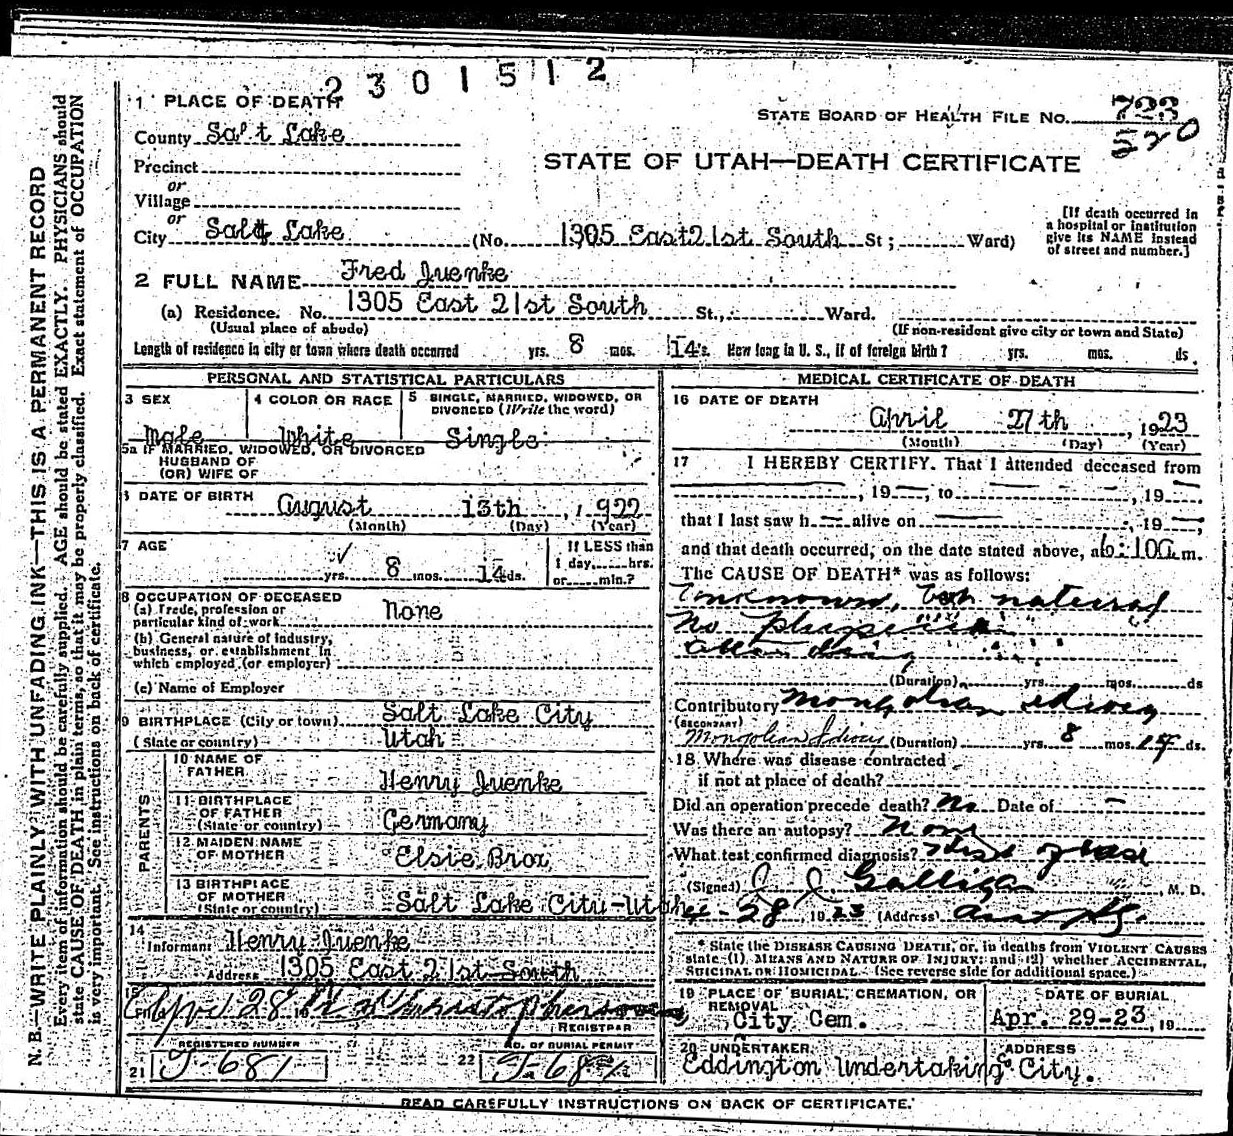 2301512
1 PLACE OF DEATH
STATE BOARD OF HEALTH FILE No. 723
520
County Salt Lake
STATE OF UTAH—DEATH CERTIFICATE
Precinct
or
Village
or
City Salt Lake (No. 1305 East 21st South St; Ward)
[If death occurred in
a hospital or institution
give its NAME instead
of street and number.]
2 FULL NAME Fred Juenke
(a) Residence. No. 1305 East 21st South St., Ward.
(Usual place of abode) (If non-resident give city or town and State)
Length of residence in city or town where death occurred yrs. 8 mos. 14 ds. How long in U. S., if of foreign birth? yrs. mos. ds.
PERSONAL AND STATISTICAL PARTICULARS
3 SEX
Male
4 COLOR OR RACE
White
5 SINGLE, MARRIED, WIDOWED, OR
DIVORCED (Write the word)
Single
5a IF MARRIED, WIDOWED, OR DIVORCED
HUSBAND OF
(OR) WIFE OF
6 DATE OF BIRTH
August 13th, 1922
(Month) (Day) (Year)
7 AGE
yrs. 8 mos. 14 ds.
If LESS than
1 day, hrs.
or min.?
8 OCCUPATION OF DECEASED
(a) Trade, profession or
particular kind of work None
(b) General nature of industry,
business, or establishment in
which employed (or employer)
(c) Name of Employer
9 BIRTHPLACE (City or town) Salt Lake City
(State or country) Utah
PARENTS
10 NAME OF
FATHER Henry Juenke
11 BIRTHPLACE
OF FATHER
(State or country) Germany
12 MAIDEN NAME
OF MOTHER Elsie Brox
13 BIRTHPLACE
OF MOTHER
(State or country) Salt Lake City-Utah
14
Informant Henry Juenke
Address 1305 East 21st South
15
Filed 28 19
REGISTRAR
REGISTERED NUMBER
21 J-681
NO. OF BURIAL PERMIT
22
MEDICAL CERTIFICATE OF DEATH
16 DATE OF DEATH
April 27th, 1923
(Month) (Day) (Year)
17 I HEREBY CERTIFY. That I attended deceased from
, 19 , to , 19
that I last saw h alive on , 19 ,
and that death occurred, on the date stated above, at 6:10a m.
The CAUSE OF DEATH* was as follows:
Unknown, but natural
No physician
attending
(Duration) yrs. mos. ds
Contributory Mongolian idiocy
(SECONDARY)
Mongolian Idiocy (Duration) yrs. 8 mos. 14 ds.
18 Where was disease contracted
if not at place of death?
Did an operation precede death? No Date of —
Was there an autopsy? None
What test confirmed diagnosis?
(Signed) J. J. Galligan, M. D.
4-28 1923 (Address)
* State the DISEASE CAUSING DEATH, or, in deaths from VIOLENT CAUSES
state (1) MEANS AND NATURE OF INJURY; and (2) whether ACCIDENTAL,
SUICIDAL OR HOMICIDAL. (See reverse side for additional space.)
19 PLACE OF BURIAL, CREMATION, OR
REMOVAL
City Cem.
DATE OF BURIAL
Apr. 29-23, 19
20 UNDERTAKER
Eddington Undertaking Co
ADDRESS
City.
READ CAREFULLY INSTRUCTIONS ON BACK OF CERTIFICATE.
N. B.—WRITE PLAINLY WITH UNFADING INK—THIS IS A PERMANENT RECORD
Every item of information should be carefully supplied. AGE should be stated EXACTLY. PHYSICIANS should
state CAUSE OF DEATH in plain terms, so that it may be properly classified. Exact statement of OCCUPATION
is very important. See instructions on back of certificate.